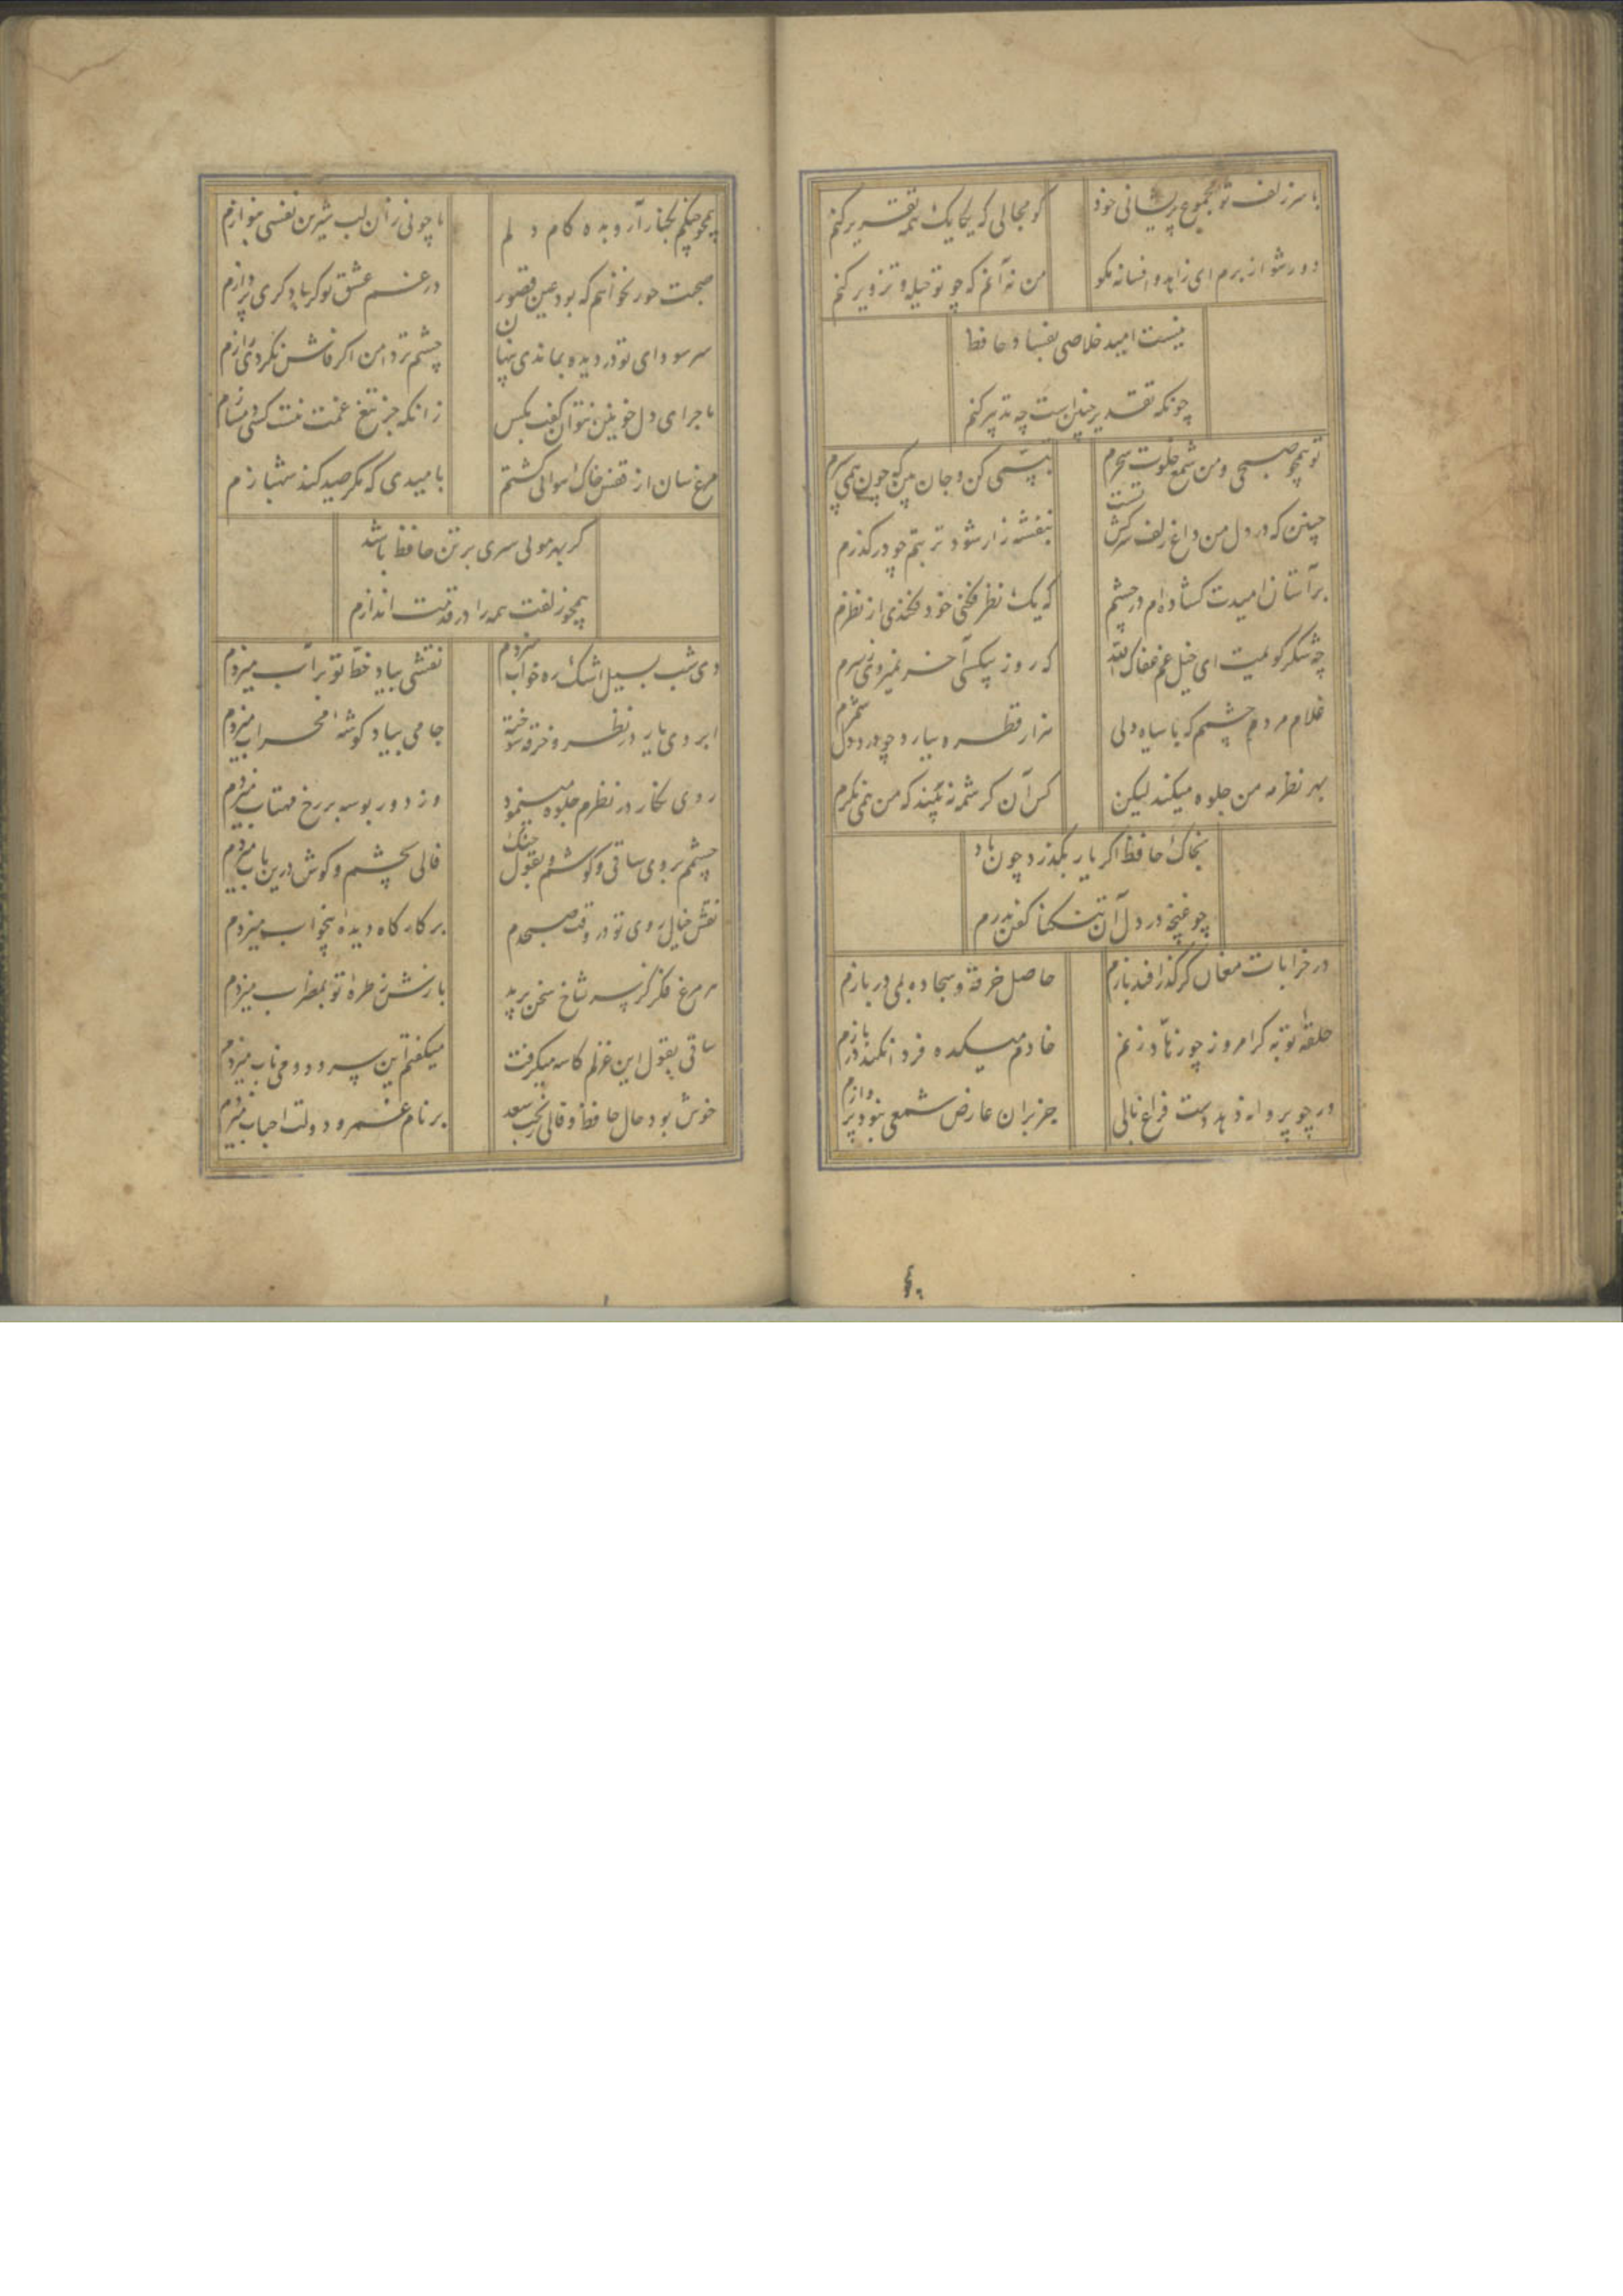 با سر زلف تو مجموع پریشانی خود
کو مجالی که یکایک همه تقریر کنم
دور شو از برم ای زاهد و افسانه مکو
من نه آنم که چو تو حیله و تزویر کنم
نیست امید خلاصی بفساد حافظ
چونکه تقدیر چنین است چه تدبیر کنم
تو همچو صبحی و من شمع خلوت سحرم
تبسمی کن و جان بین که چون همی سپرم
چنین که در دل من داغ زلف سرکش تست
بنفشه زار شود تربتم چو درکذرم
بر آستان امیدت کشاده‌ام در چشم
که یک نظر فکنی خود فکندی از نظرم
چه شکر کویمت ای خیل غم عفاک الله
که روز بیکسی آخر نمیروی ز سرم
غلام مردم چشمم که با سیاه دلی
هزار قطره ببارد چو درد دل شمرم
بهر نظر مه من جلوه میکند لیکن
کس آن کرشمه نه بیند که من همی نکرم
بخاک حافظ اکر یار بکذرد چون باد
چو غنچه در دل آن تنکنا کفن بدرم
در خرابات مغان کر کذر افتد بازم
حاصل خرقه و سجاده بمی دربازم
حلقه توبه کر امروز چو زهاد زنم
خادم میکده فردا نکند در بازم
ور چو پروانه دهد دست فراغ بالی
جز بران عارض شمعی نبود پروازم
همچو چنکم بکنار آر و بده کام دلم
یا چو نی زان لب شیرین نفسی بنوازم
صحبت حور نخواهم که بود عین قصور
در غم عشق تو کر با دکری پردازم
سر سودای تو در دیده بماندی پنهان
چشم تردامن اکر فاش نکردی رازم
ماجرای دل خونین نتوان کفت بکس
زانکه جز تیغ غمت نیست کسی دمسازم
مرغ سان از قفس خاک هوایی کشتم
بامیدی که مکر صید کند شهبازم
کر بهر مویی سری بر تن حافظ باشد
همچو زلفت همه را در قدمت اندازم
دی شب بسیل اشک ره خواب میزدم
نقشی بیاد خط تو بر آب میزدم
ابروی یار در نظر و خرقه سوخته
جامی بیاد کوشه محراب میزدم
روی نکار در نظرم جلوه مینمود
وز دور بوسه بر رخ مهتاب میزدم
چشمم بروی ساقی و کوشم بقول چنک
فالی بچشم و کوش درین باب میزدم
نقش خیال روی تو در وقت صبحدم
بر کارکاه دیده بیخواب میزدم
هر مرغ فکر کز سر شاخ سخن پرید
بازش ز طره تو بمضراب میزدم
ساقی بقول این غزلم کاسه میکرفت
میکفتم این سرود و می ناب میزدم
خوش بود حال حافظ و فالی ببخت سعد
بر نام عمر و دولت احباب میزدم